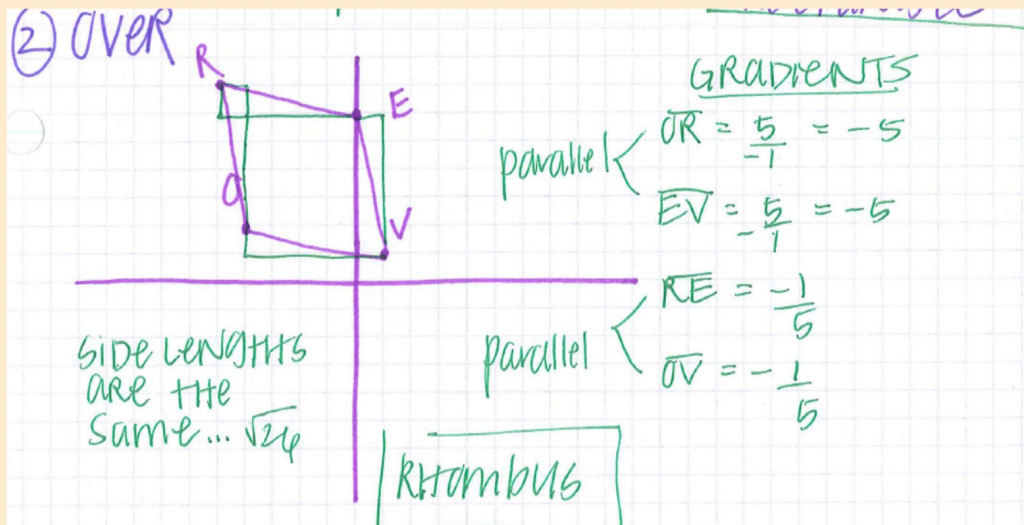 ② OVER
R
E
O
V
GRADIENTS
parallel
OR = 5/-1 = -5
EV = 5/-1 = -5
parallel
RE = -1/5
OV = -1/5
SIDE LENGTHS
ARE THE
Same... √26
RHOMBUS